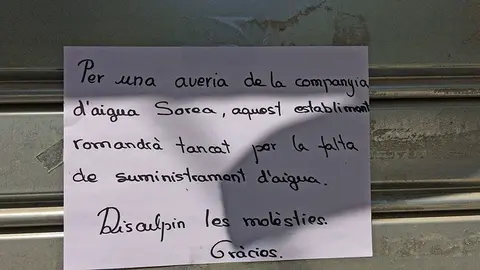 Per una averia de la companyia
d'aigua Sorea, aquest establiment
romandrà tancat por la falta
de suministrament d'aigua.
Disculpin les molèsties.
Gràcies.